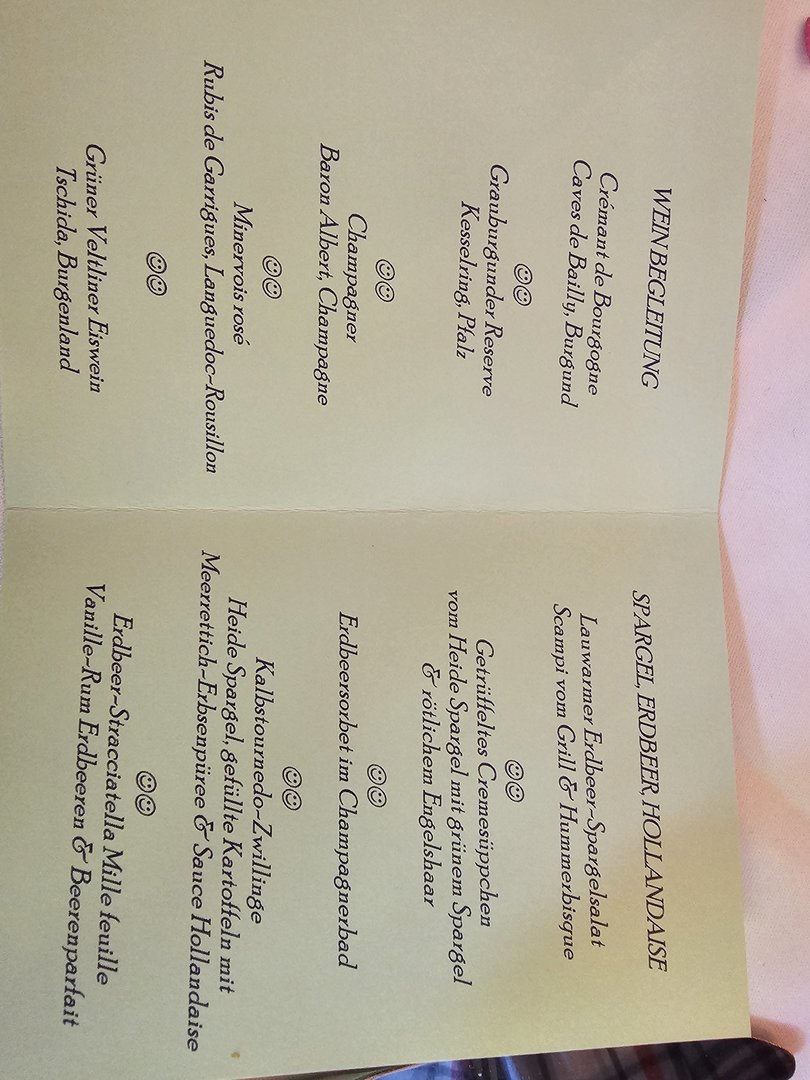 WEINBEGLEITUNG
Crémant de Bourgogne
Caves de Bailly, Burgund
Grauburgunder Reserve
Kesselring, Pfalz
Champagner
Baron Albert, Champagne
Minervois rosé
Rubis de Garrigues, Languedoc-Rousillon
Grüner Veltliner Eiswein
Tschida, Burgenland
SPARGEL, ERDBEER, HOLLANDAISE
Lauwarmer Erdbeer-Spargelsalat
Scampi vom Grill & Hummerbisque
Getrüffeltes Cremesüppchen
vom Heide Spargel mit grünem Spargel
& rötlichem Engelshaar
Erdbeersorbet im Champagnerbad
Kalbstournedo-Zwillinge
Heide Spargel, gefüllte Kartoffeln mit
Meerrettich-Erbsenpüree & Sauce Hollandaise
Erdbeer-Stracciatella Mille feuille
Vanille-Rum Erdbeeren & Beerenparfait